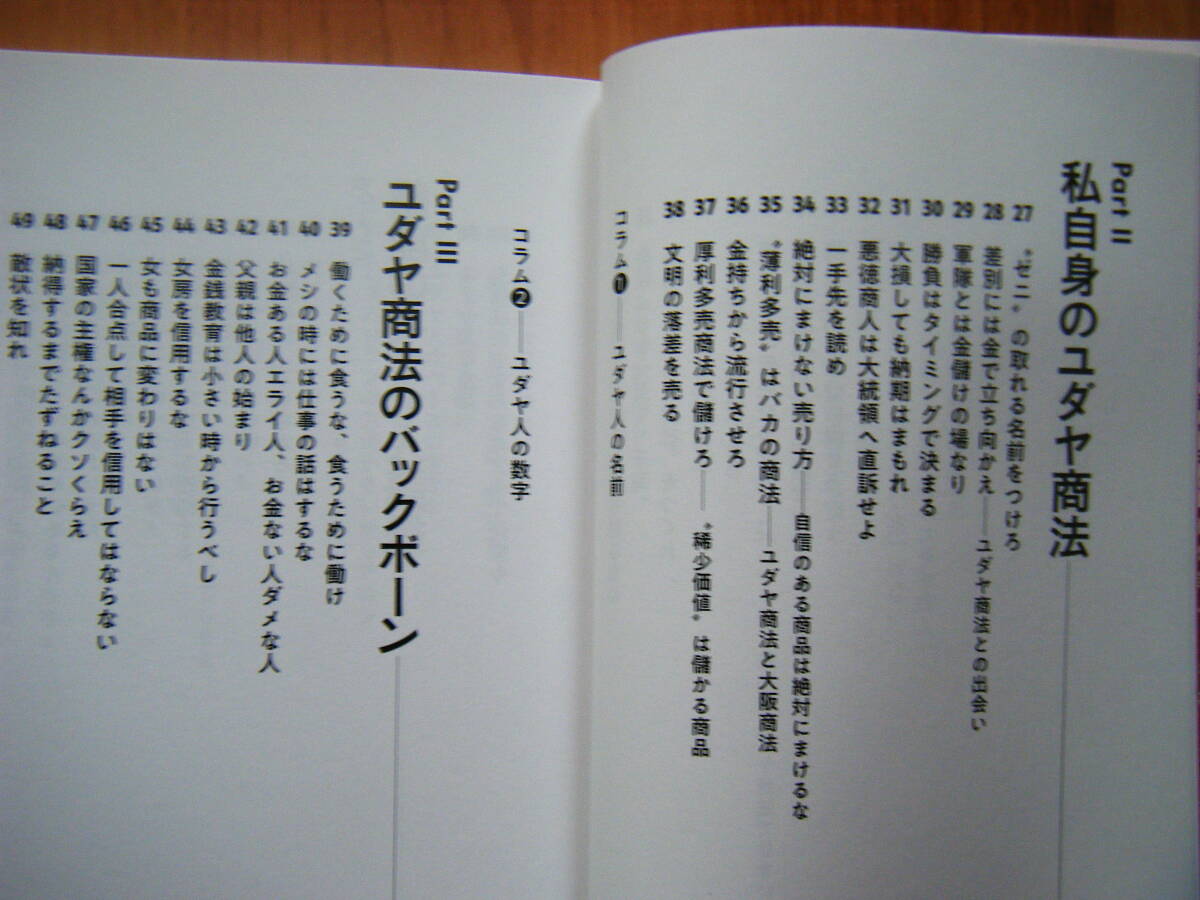 Part II
私自身のユダヤ商法
27 〝ゼニ〟の取れる名前をつけろ
28 差別には金で立ち向かえ——ユダヤ商法との出会い
29 軍隊とは金儲けの場なり
30 勝負はタイミングで決まる
31 大損しても納期はまもれ
32 悪徳商人は大統領へ直訴せよ
33 一手先を読め
34 絶対にまけない売り方——自信のある商品は絶対にまけるな
35 〝薄利多売〟はバカの商法——ユダヤ商法と大阪商法
36 金持ちから流行させろ
37 厚利多売商法で儲けろ——〝稀少価値〟は儲かる商品
38 文明の落差を売る
コラム❶——ユダヤ人の名前
コラム❷——ユダヤ人の数字
Part III
ユダヤ商法のバックボーン
39 働くために食うな、食うために働け
40 メシの時には仕事の話はするな
41 お金ある人エライ人、お金ない人ダメな人
42 父親は他人の始まり
43 金銭教育は小さい時から行うべし
44 女房を信用するな
45 女も商品に変わりはない
46 一人合点して相手を信用してはならない
47 国家の主権なんかクソくらえ
48 納得するまでたずねること
49 敵状を知れ